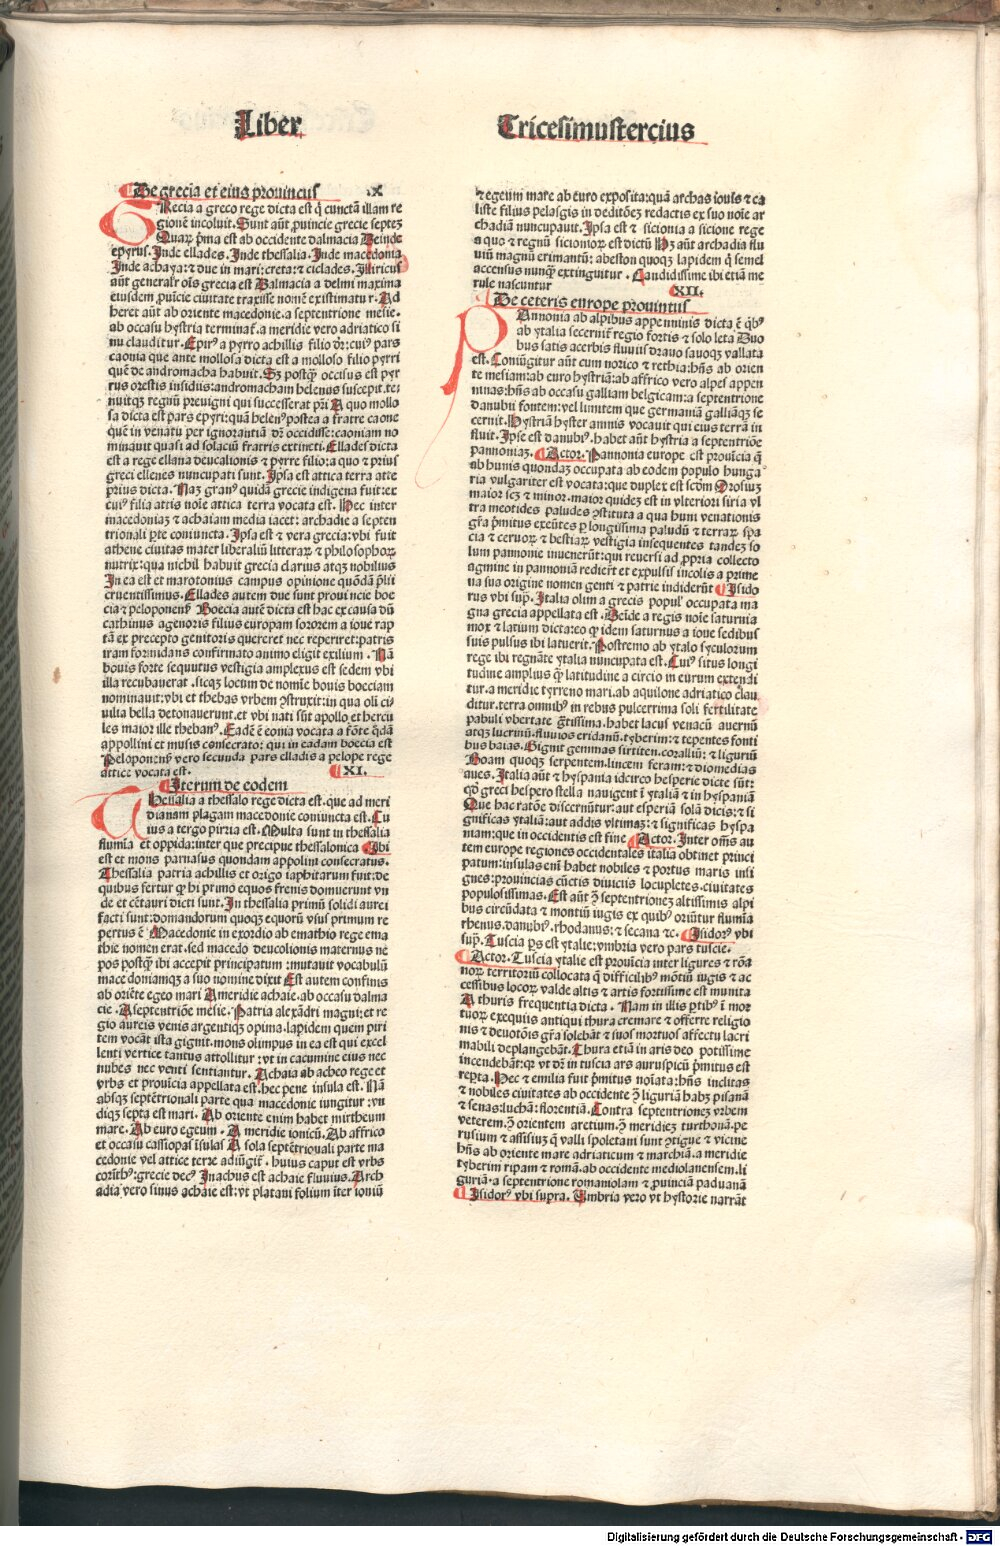 Liber
Tricesimustercius
De grecia et eius prouinciis .X
GRecia a greco rege dicta est q̄ cunctā illam re
gionē incoluit. Sunt aūt ꝓuincie grecie septez
Quarꝝ p̄ma est ab occidente dalmacia Deinde
epyrus. Inde ellades. Inde thessalia. Inde macedonia
Inde achaya: ⁊ due in mari: creta: ⁊ ciclades. Illiricus
aūt generalr̄ oīs grecia est Dalmacia a delmi maxima
eiusdem ꝓuīcie ciuitate traxisse nomē existimatur. Ad
heret aūt ab oriente macedonie. a septentrione mesie.
ab occasu hystria terminat̄. a meridie vero adriatico si
nu clauditur. Epirꝰ a pyrro achillis filio dr̄: cuiꝰ pars
caonia que ante mollosa dicta est a molloso filio pyrri
quē de andromacha habuit. Sz postqꝫ occisus est pyr
rus orestis insidiis: andromacham helenus suscepit. te:
nuitqꝫ regnū preuigni qui successerat pr̄i A quo mollo
sa dicta est pars epyri: quā helenꝰ postea a fratre caone
quē in venatu per ignorantiā dr̄ occidisse: caoniam no
minauit quasi ad solaciū fratris extincti. Ellades dicta
est a rege ellana deucalionis ⁊ pyrre filio: a quo ⁊ prius
greci ellenes nuncupati sunt. Ipsa est attica terra atte
prius dicta. Nāz granꝰ quidā grecie indigena fuit: ex
cuiꝰ filia attis noīe attica terra vocata est. Hec inter
macedoniaz ⁊ achaiam media iacet: archadie a septen
trionali pte coniuncta. Ipsa est ⁊ vera grecia: vbi fuit
athene ciuitas mater liberaliū litterarꝝ ⁊ philosophorꝝ
nutrix: qua nichil habuit grecia clarius atqꝫ nobilius
In ea est et marotonius campus opinione quōdā p̄lii
cruentissimus. Ellades autem due sunt prouincie boe
cia ⁊ peloponenꝰ Boecia autē dicta est hac ex causa dū
cathinus agenoris filius europam sororem a ioue rap
tā ex precepto genitoris quereret nec reperiret: patris
iram formidans confirmato animo eligit exilium. Nā
bouis forte sequutus vestigia amplexus est sedem vbi
illa recubauerat. sicqꝫ locum de nomīe bouis boeciam
nominauit: vbi et thebas vrbem ꝯstruxit: in qua oli ci:
uilia bella detonauerunt. et vbi nati sūt apollo et hercu
les maior ille thebanꝰ. Eadē ē eonia vocata a fōte q̄dā
appollini et musis consecrato: qui in eadam boecia est
Peloponenꝰ vero secunda pars elladis a pelope rege
attice vocata est. XI.
Iterum de eodem
THessalia a thessalo rege dicta est. que ad meri
dianam plagam macedonie coniuncta est. Cu
ius a tergo pirria est. Multa sunt in thessalia
flumīa et oppida: inter que precipue thessalonica Ibi
est et mons parnasus quondam appolini consecratus.
Thessalia patria achillis et origo laphitarum fuit: de
quibus fertur qꝫ hi primo equos frenis domuerunt vn
de et cētauri dicti sunt. In thessalia primū solidi aurei
facti sunt: domandorum quoqꝫ equorū vsus primum re
pertus ē Macedonie in exordio ab emathio rege ema
thie nomen erat. sed macedo deucolionis maternus ne
pos postqꝫ ibi accepit principatum: mutauit vocabulū
macedoniamqꝫ a suo nomine dixit Est autem confinis
ab oriēte egeo mari Ameridie achaie. ab occasu dalma
cie. Aseptentriōe mesie. Patria alexādri magni: et re
gio aureis venis argentiqꝫ opima. lapidem quem piri
tem vocāt ista gignit. mons olimpus in ea est qui excel
lenti vertice tantus attollitur: vt in cacumine eius nec
nubes nec venti sentiantur. Achaia ab acheo rege et
vrbs et prouīcia appellata est. hec pene insula est. Nā
absqꝫ septētrionali parte qua macedonie iungitur: vn
diqꝫ septa est mari. Ab oriente enim habet mirtheum
mare. Ab euro egeum. A meridie ionicū. Ab affrico
et occasu cassiopas īsulas A sola septētrionali parte ma
cedonie vel attice terre adiūgit̄. huius caput est vrbs
corīthꝰ: grecie decꝰ Inachus est achaie fluuius. Arch
adia vero sinus achaie est: vt platani folium īter ioniū
⁊ egeum mare ab euro exposita: quā archas iouis ⁊ ca
liste filius pelasgis in deditōez redactis ex suo noīe ar
chadiā nuncupauit. Ipsa est ⁊ sicionia a sicione rege
a quo ⁊ regnū sicioniorꝝ est dictū Hz aūt archadia flu
uiū magnū erimantū: abeston quoqꝫ lapidem q̄ semel
accensus nunqꝫ extinguitur. Candidissime ibi etiā me
rule nascuntur
XII.
De ceteris europe prouintiis
PAnnonia ab alpibus appenninis dicta ē qͥbꝰ
ab ytalia secernit̄ regio fortis ⁊ solo leta Duo
bus satis acerbis fluuiis drauo sauoqꝫ vallata
est. Coniūgitur aūt cum norico ⁊ rethia: hn̄s ab orien
te mesiam: ab euro hystriā: ab affrico vero alpes appen
ninas: hn̄s ab occasu galliam belgicam: a septentrione
danubii fontem: vel limitem que germaniā galliāqꝫ se
cernit. Hystriā hyster amnis vocauit qui eius terrā in
fluit. Ipse est danubiꝰ. habet aūt hystria a septentriōe
pannoniaz. Actor. Pannonia europe est prouīcia q̄
ab hunis quondaz occupata ab eodem populo hunga
ria vulgariter est vocata: que duplex est scd̄m Orosiuz
maior scz ⁊ minor. maior quidez est in vlteriori siria vl
tra meotides paludes ꝯstituta a qua huni venationis
gr̄a p̄mitus exeūtes ꝑ longissima paludū ⁊ terrarꝝ spa
cia ⁊ ceruorꝝ ⁊ bestiarꝝ vestigia insequentes tandez so
lum pannonie inuenerūt: qui reuersi ad ꝓpria collecto
agmine in pannoniā rediert̄ et expulsis incolis a prime
na sua origine nomen genti ⁊ patrie indiderūt Isido
rus vbi supͣ. Italia olim a grecis populꝰ occupata ma
gna grecia appellata est. Deide a regis noīe saturnia
mox ⁊ latium dicta: eo qꝫ idem saturnus a ioue sedibus
suis pulsus ibi latuerit. Postremo ab ytalo syculorum
rege ibi regnāte ytalia nuncupata est. Cuiꝰ situs longi
tudine amplius qꝫ latitudine a circio in eurum extendi
tur. a meridie tyrreno mari. ab aquilone adriatico clau
ditur. terra omnibꝰ in rebus pulcerrima soli fertilitate
pabuli vbertate gr̄tissima. habet lacus venacū auernū
atqꝫ lucrinū. fluuios eridanū. tyberim: ⁊ tepentes fonti
bus baias. Gignit gemmas sirtiten. coralliū: ⁊ liguriū
Boam quoqꝫ serpentem. lincem feram: ⁊ diomedias
aues. Italia aūt ⁊ hyspania idcirco hesperie dicte sūt:
qd̄ greci hespero stella nauigent ī ytaliā ⁊ in hyspaniā
Que hac ratōe discernūtur: aut esperiā solā dicis: ⁊ si
gnificas ytaliā: aut addis vltimaz: ⁊ significas hyspa
niam: que in occidentis est fine Actor. Inter oms̄ au
tem europe regiones occidentales italia obtinet princi
patum: insulas eni habet nobiles ⁊ portus maris insi
gnes: prouincias cūctis diuiciis locupletes. ciuitates
populosissimas. Est aūt ꝫ septentrionez altissimis alpi
bus circūdata ⁊ montiū iugis ex quibꝰ oriūtur flumīa
rhenus. danubiꝰ. rhodanus: ⁊ secana ⁊c. Isidorꝰ vbi
supͣ. Tuscia ꝑs est ytalie: vmbria vero pars tuscie.
Actor. Tuscia ytalie est prouīcia inter ligures ⁊ rōa
norꝝ territoriū collocata q̄ difficilibꝰ mōtiū iugis ⁊ ac
cessibus locorꝝ valde altis ⁊ artis fortissime est munita
A thuris frequentia dicta. Nam in illis ꝑtibꝰ ī mor
tuorꝝ exequiis antiqui thura cremare ⁊ offerre religio
nis ⁊ deuotōis gr̄a solebāt ⁊ suos mortuos affectu lacri
mabili deplangebāt. Thura etiā in aris deo potissime
incendebāt: qꝛ vt dr̄ in tuscia ars auruspicū p̄mitus est
repͭta. Hec ⁊ emilia fuit p̄mitus noīata: hn̄s inclitas
⁊ nobiles ciuitates ab occidente ꝫ liguriā habꝫ pisanā
⁊ senas: luchā: florentiā. Contra septentrionez vrbem
veterem. ꝫ orientem aretium. ꝫ meridiez turthonā. pe
rusium ⁊ assisiuz q̄ valli spoletani sunt ꝯtigue ⁊ vicine
hn̄s ab oriente mare adriaticum ⁊ marchiā. a meridie
tyberim ripam ⁊ romā. ab occidente mediolanensem. li
guriā. a septentrione romaniolam ⁊ ꝓuinciā paduanā
Isidorꝰ vbi supra. Umbria vero vt hystorie narrāt
Digitalisierung gefördert durch die Deutsche Forschungsgemeinschaft - DFG